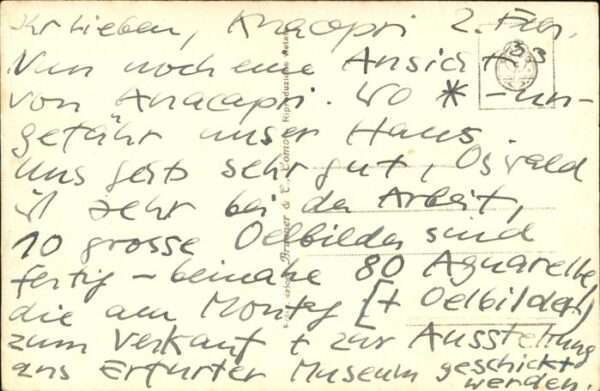 Ihr Lieben, Anacapri 2. Febr.
33
Nun noch eine Ansicht
von Anacapri. Wo * -un-
gefähr unser Haus
Uns gehts sehr gut, Oswald
ist sehr bei der Arbeit,
10 grosse Oelbilder sind
fertig - beinahe 80 Aquarelle
die am Montag [+ Oelbilder]
zum Verkauf + zur Ausstellung
ans Erfurter Museum geschickt
werden.
Brunner & C. Como Riproduzione vietata